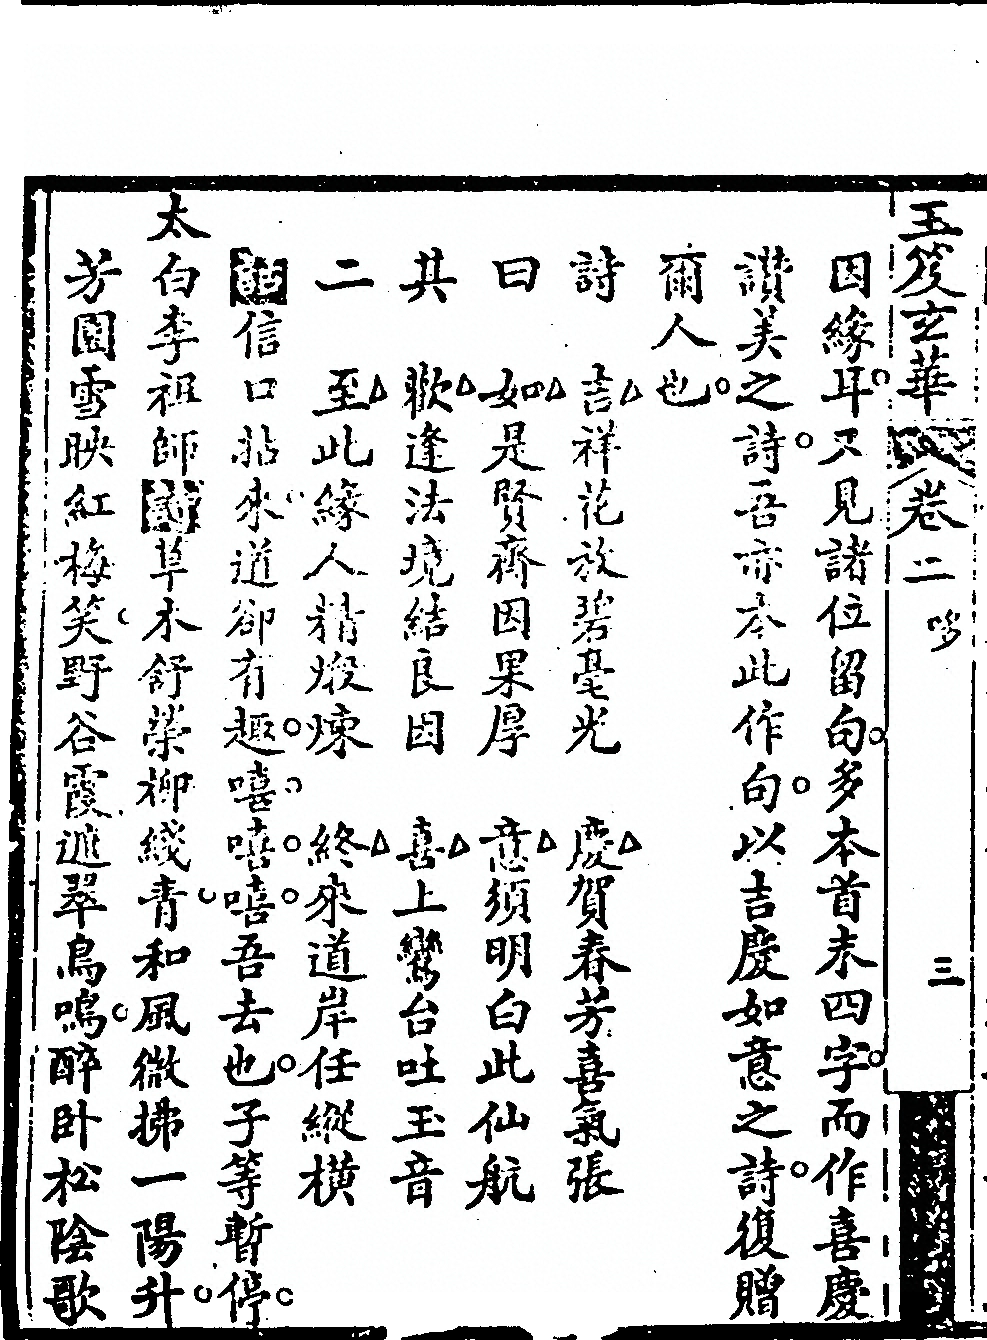 玉笈玄華 卷二 哆 三
因緣耳只見諸位留句多本首末四字而作喜慶
讚美之詩吾亦本此作句以吉慶如意之詩復贈
爾人也
詩 吉祥花放碧毫光 慶賀春芳喜氣張
曰 如是賢齊因果厚 意須明白此仙航
其 歡逢法境結良因 喜上鸞台吐玉音
二 至此緣人精煅煉 終來道岸任縱橫
話信口拈來道卻有趣嘻嘻嘻吾去也子等暫停
太白李祖師詩草木舒榮柳綫青和風微拂一陽升
芳園雪映紅梅笑野谷霞遮翠鳥鳴醉臥松陰歌